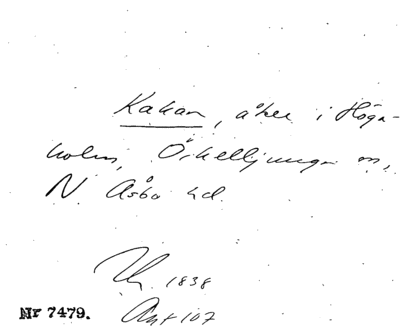 Kakan, åker i Höga-
holm, Örkelljunga sn,
N Åsbo hd.
1838
Nr 7479. Akt 107